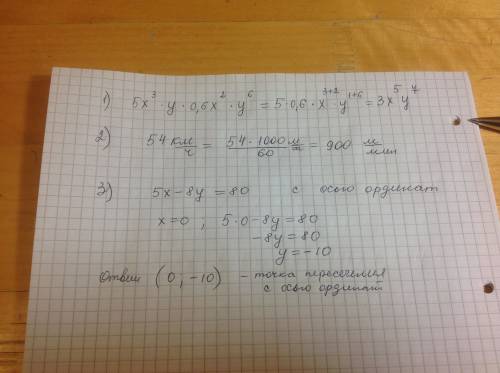 1) 5x³ · y · 0,6x² · y⁶ = 5 · 0,6 · x³⁺² y¹⁺⁶ = 3x⁵y⁷
2) 54 км/ч = 54 · 1000/60 м/м = 900 м/мин
3) 5x - 8y = 80 с осью ординат
x = 0 ; 5 · 0 - 8y = 80
-8y = 80
y = -10
Ответ (0, -10) - точка пересечения
с осью ординат